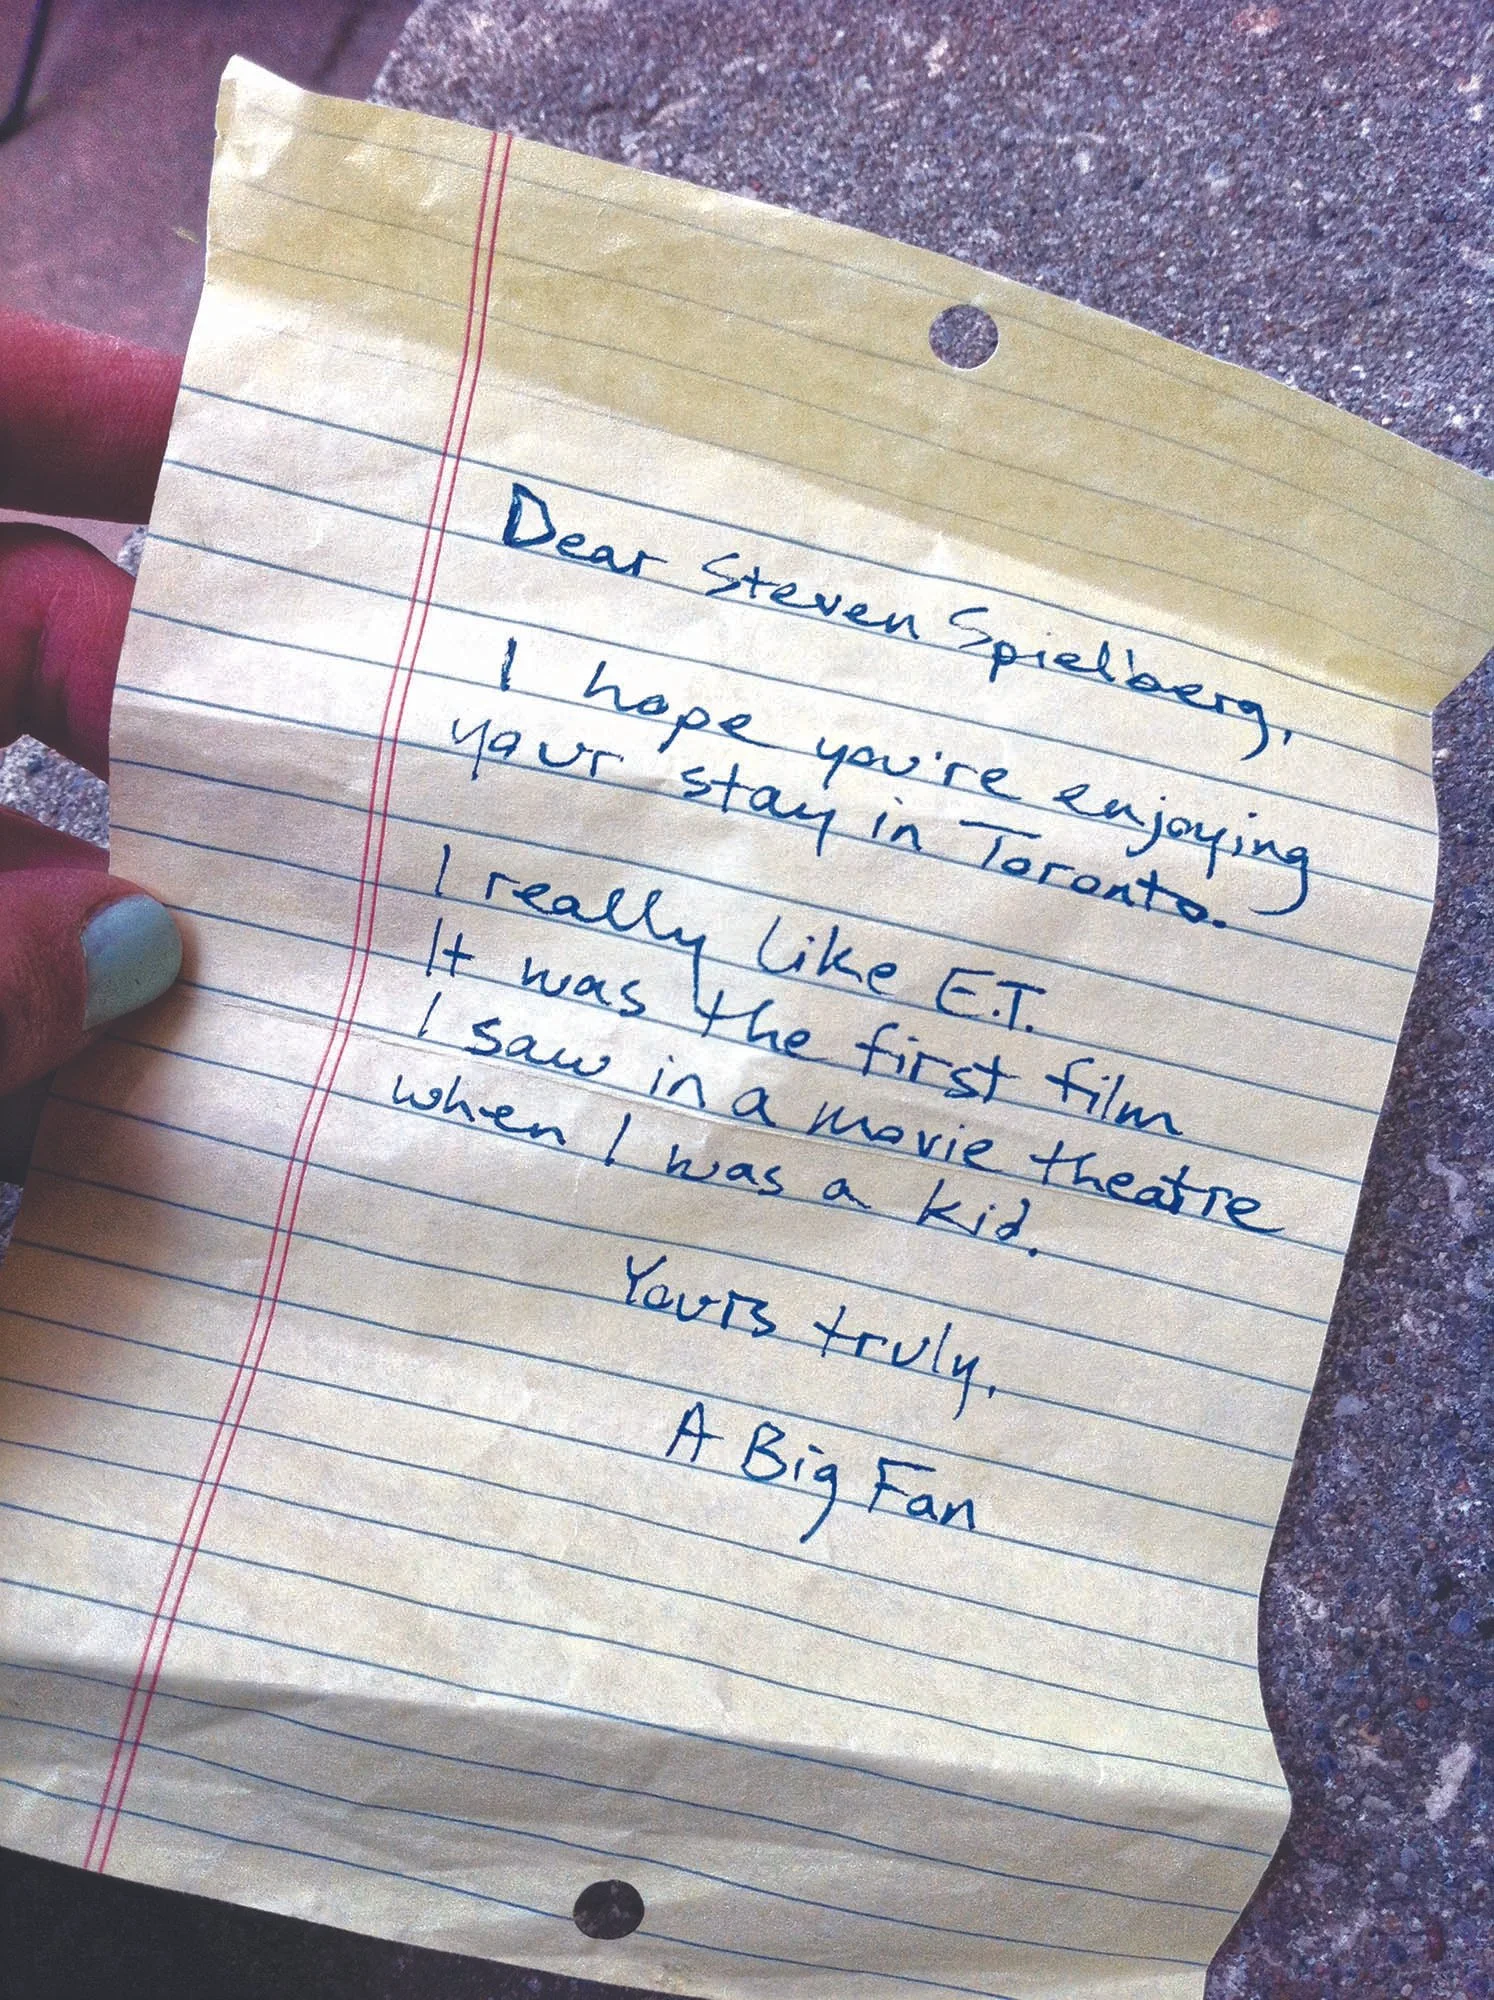 Dear Steven Spielberg,
I hope you're enjoying
your stay in Toronto.
I really like E.T.
It was the first film
I saw in a movie theatre
when I was a kid.
Yours truly,
A Big Fan